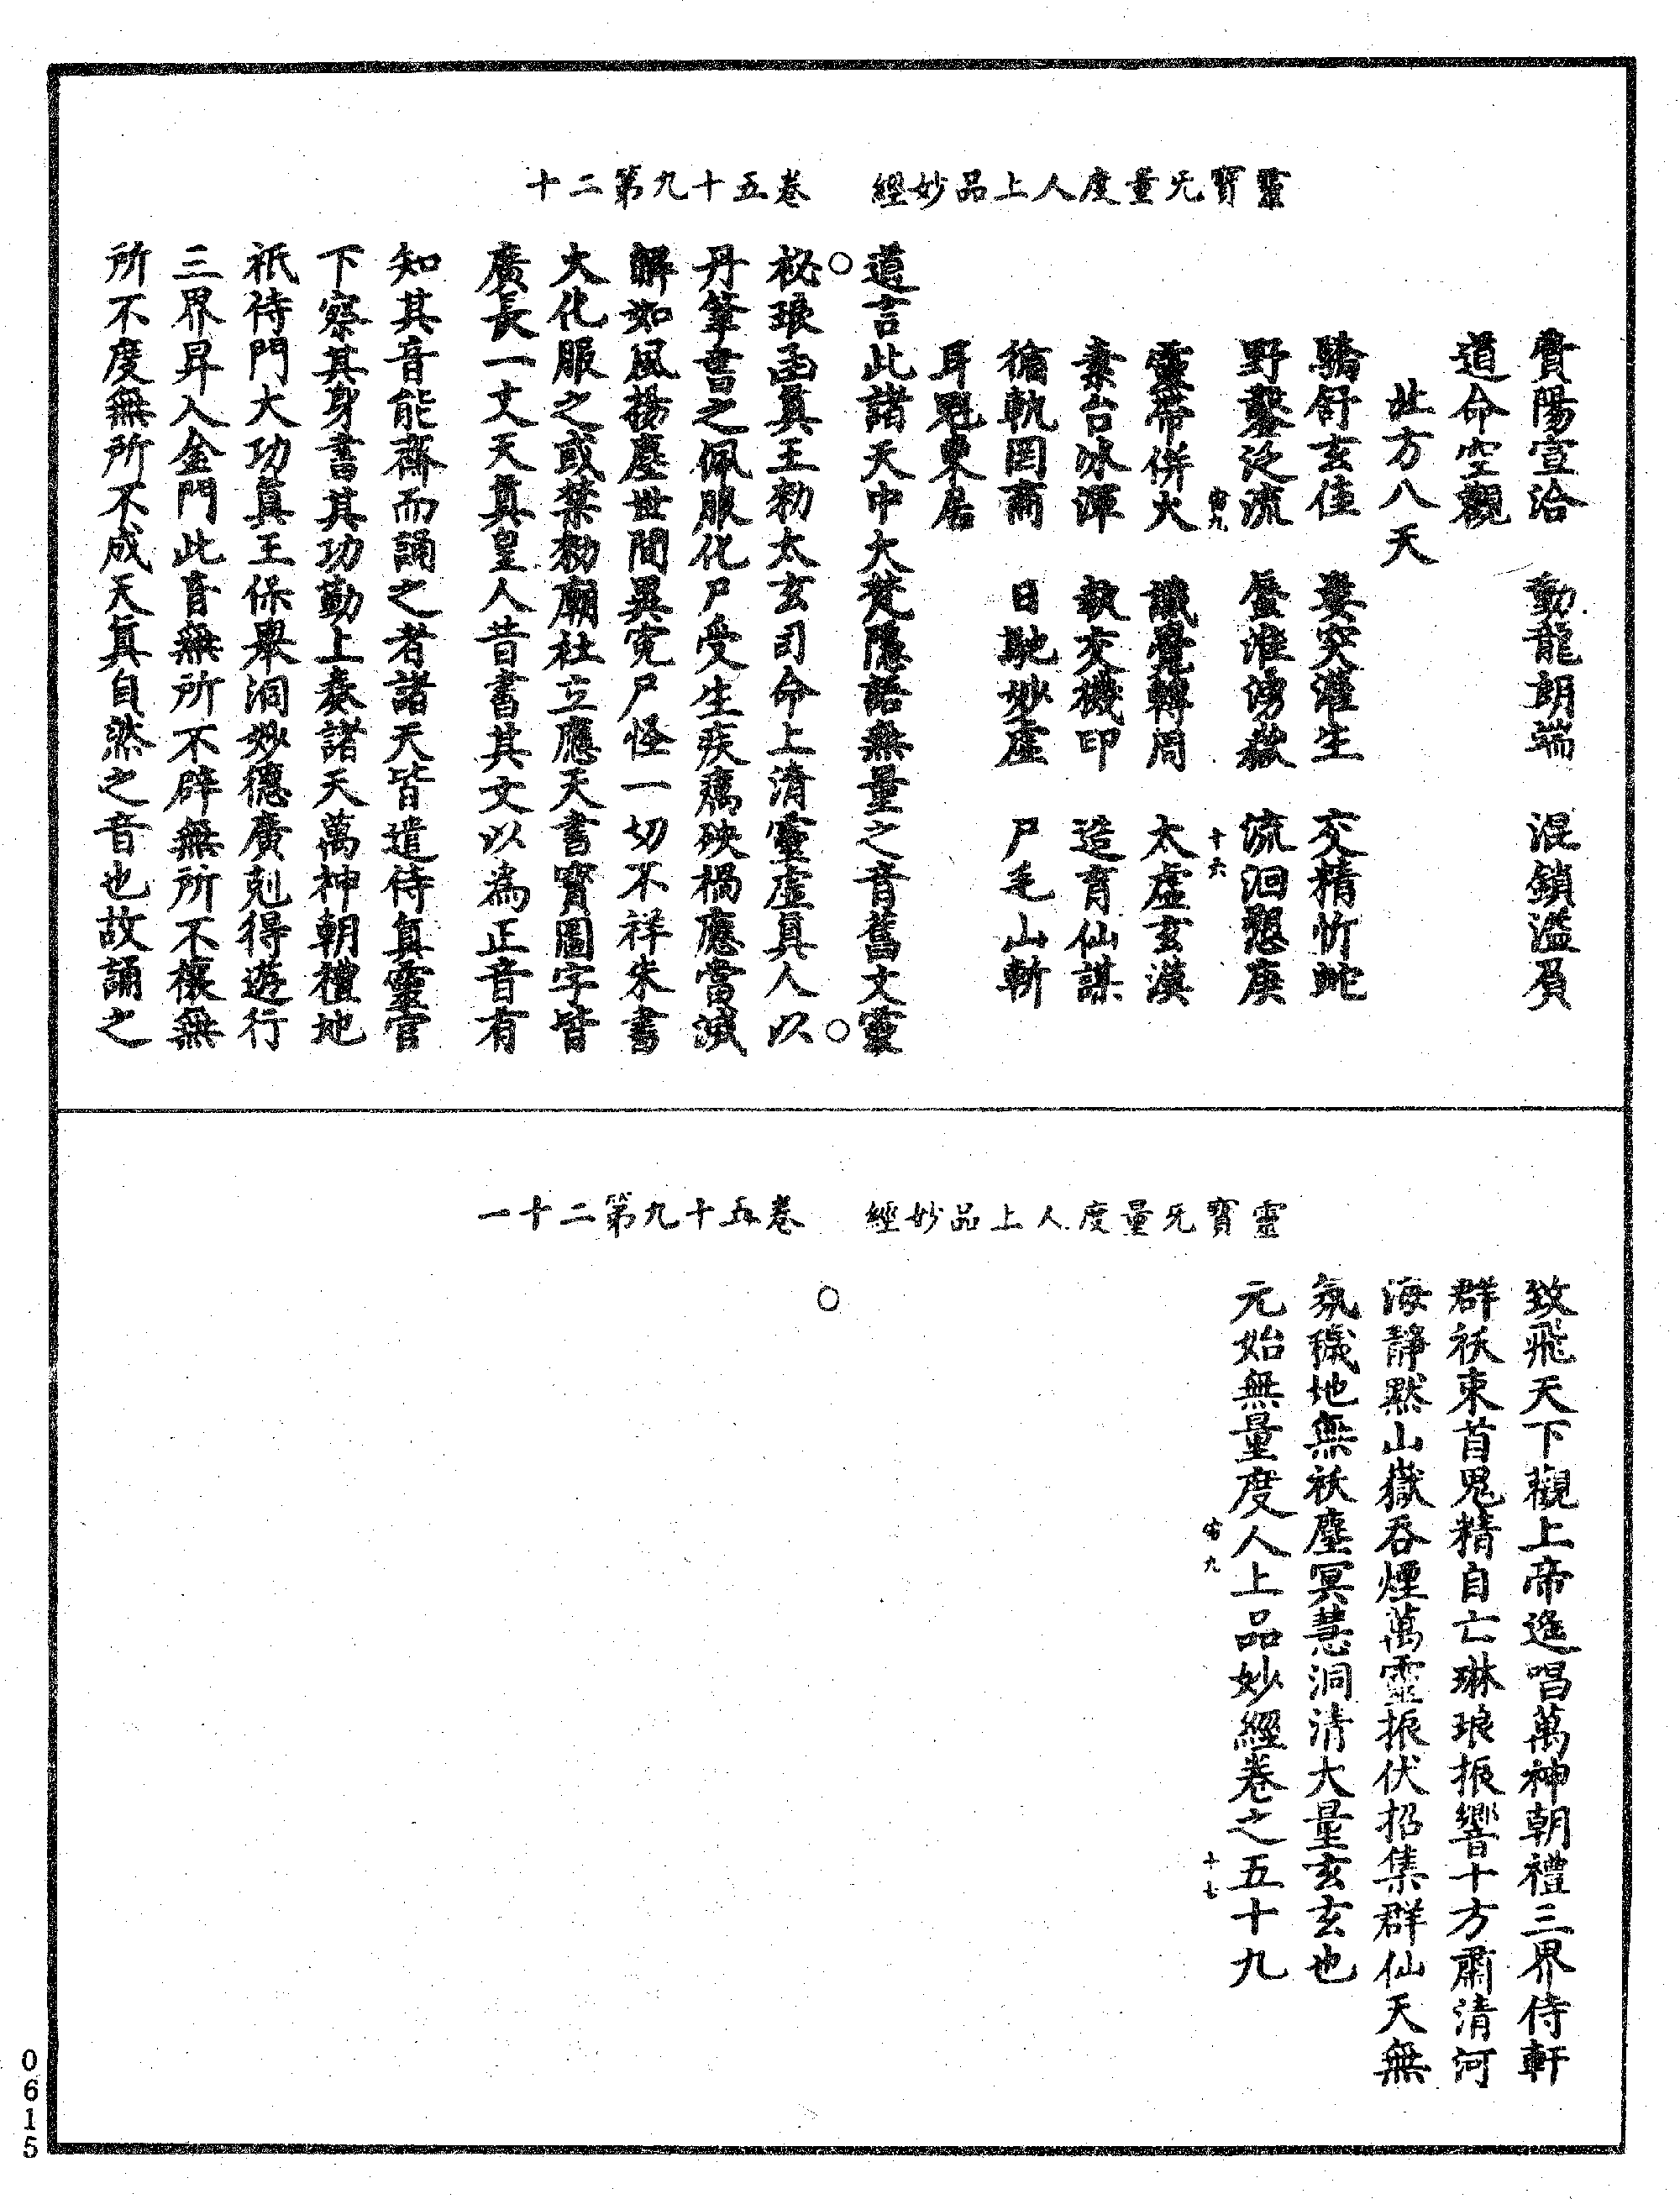 靈寶无量度人上品妙經　卷五十九第二十
賁陽宣洽　動龍朗端　混鎖濫負
道命空觀
北方八天
驕舒玄佳　婁突灌生　交精忻蛇
野鑿泛流　蜃淮湧嶽　流洄懇庚
霤九　十六
靈帝併火　讖覺轉周　太虛玄漠
秦台冰渾　教交機印　造育仙謀
循軌因爾　日馳妙虛　尸毛山斬
耳魁東居
道言此諸天中大梵隱語無量之音舊文靈
祕琅函真王勑太玄司命上清靈虛真人以
丹筆書之佩服化尸受生疾癘殃禍應當滅
解如風揚塵世間異寃尸怪一切不祥朱書
大化服之或禁勑廟社立應天書寶圖字皆
廣長一丈天真皇人昔書其文以為正音有
知其音能齋而誦之者諸天皆遣侍真靈官
下察其身書其功勤上奏諸天萬神朝禮地
祇侍門大功真王保舉洞妙德廣剋得遊行
三界昇入金門此音無所不辟無所不禳無
所不度無所不成天真自然之音也故誦之
靈寶无量度人上品妙經　卷五十九第二十一
致飛天下觀上帝遙唱萬神朝禮三界侍軒
群祅束首鬼精自亡琳琅振響十方肅清河
海靜默山嶽吞煙萬靈振伏招集群仙天無
氛穢地無祅塵冥慧洞清大量玄玄也
元始無量度人上品妙經卷之五十九
九　十七
0615